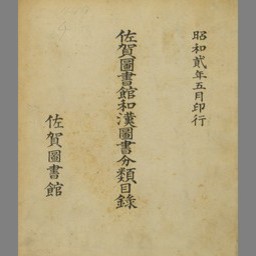 昭和貳年五月印行
佐賀圖書館和漢圖書分類目錄
佐賀圖書館